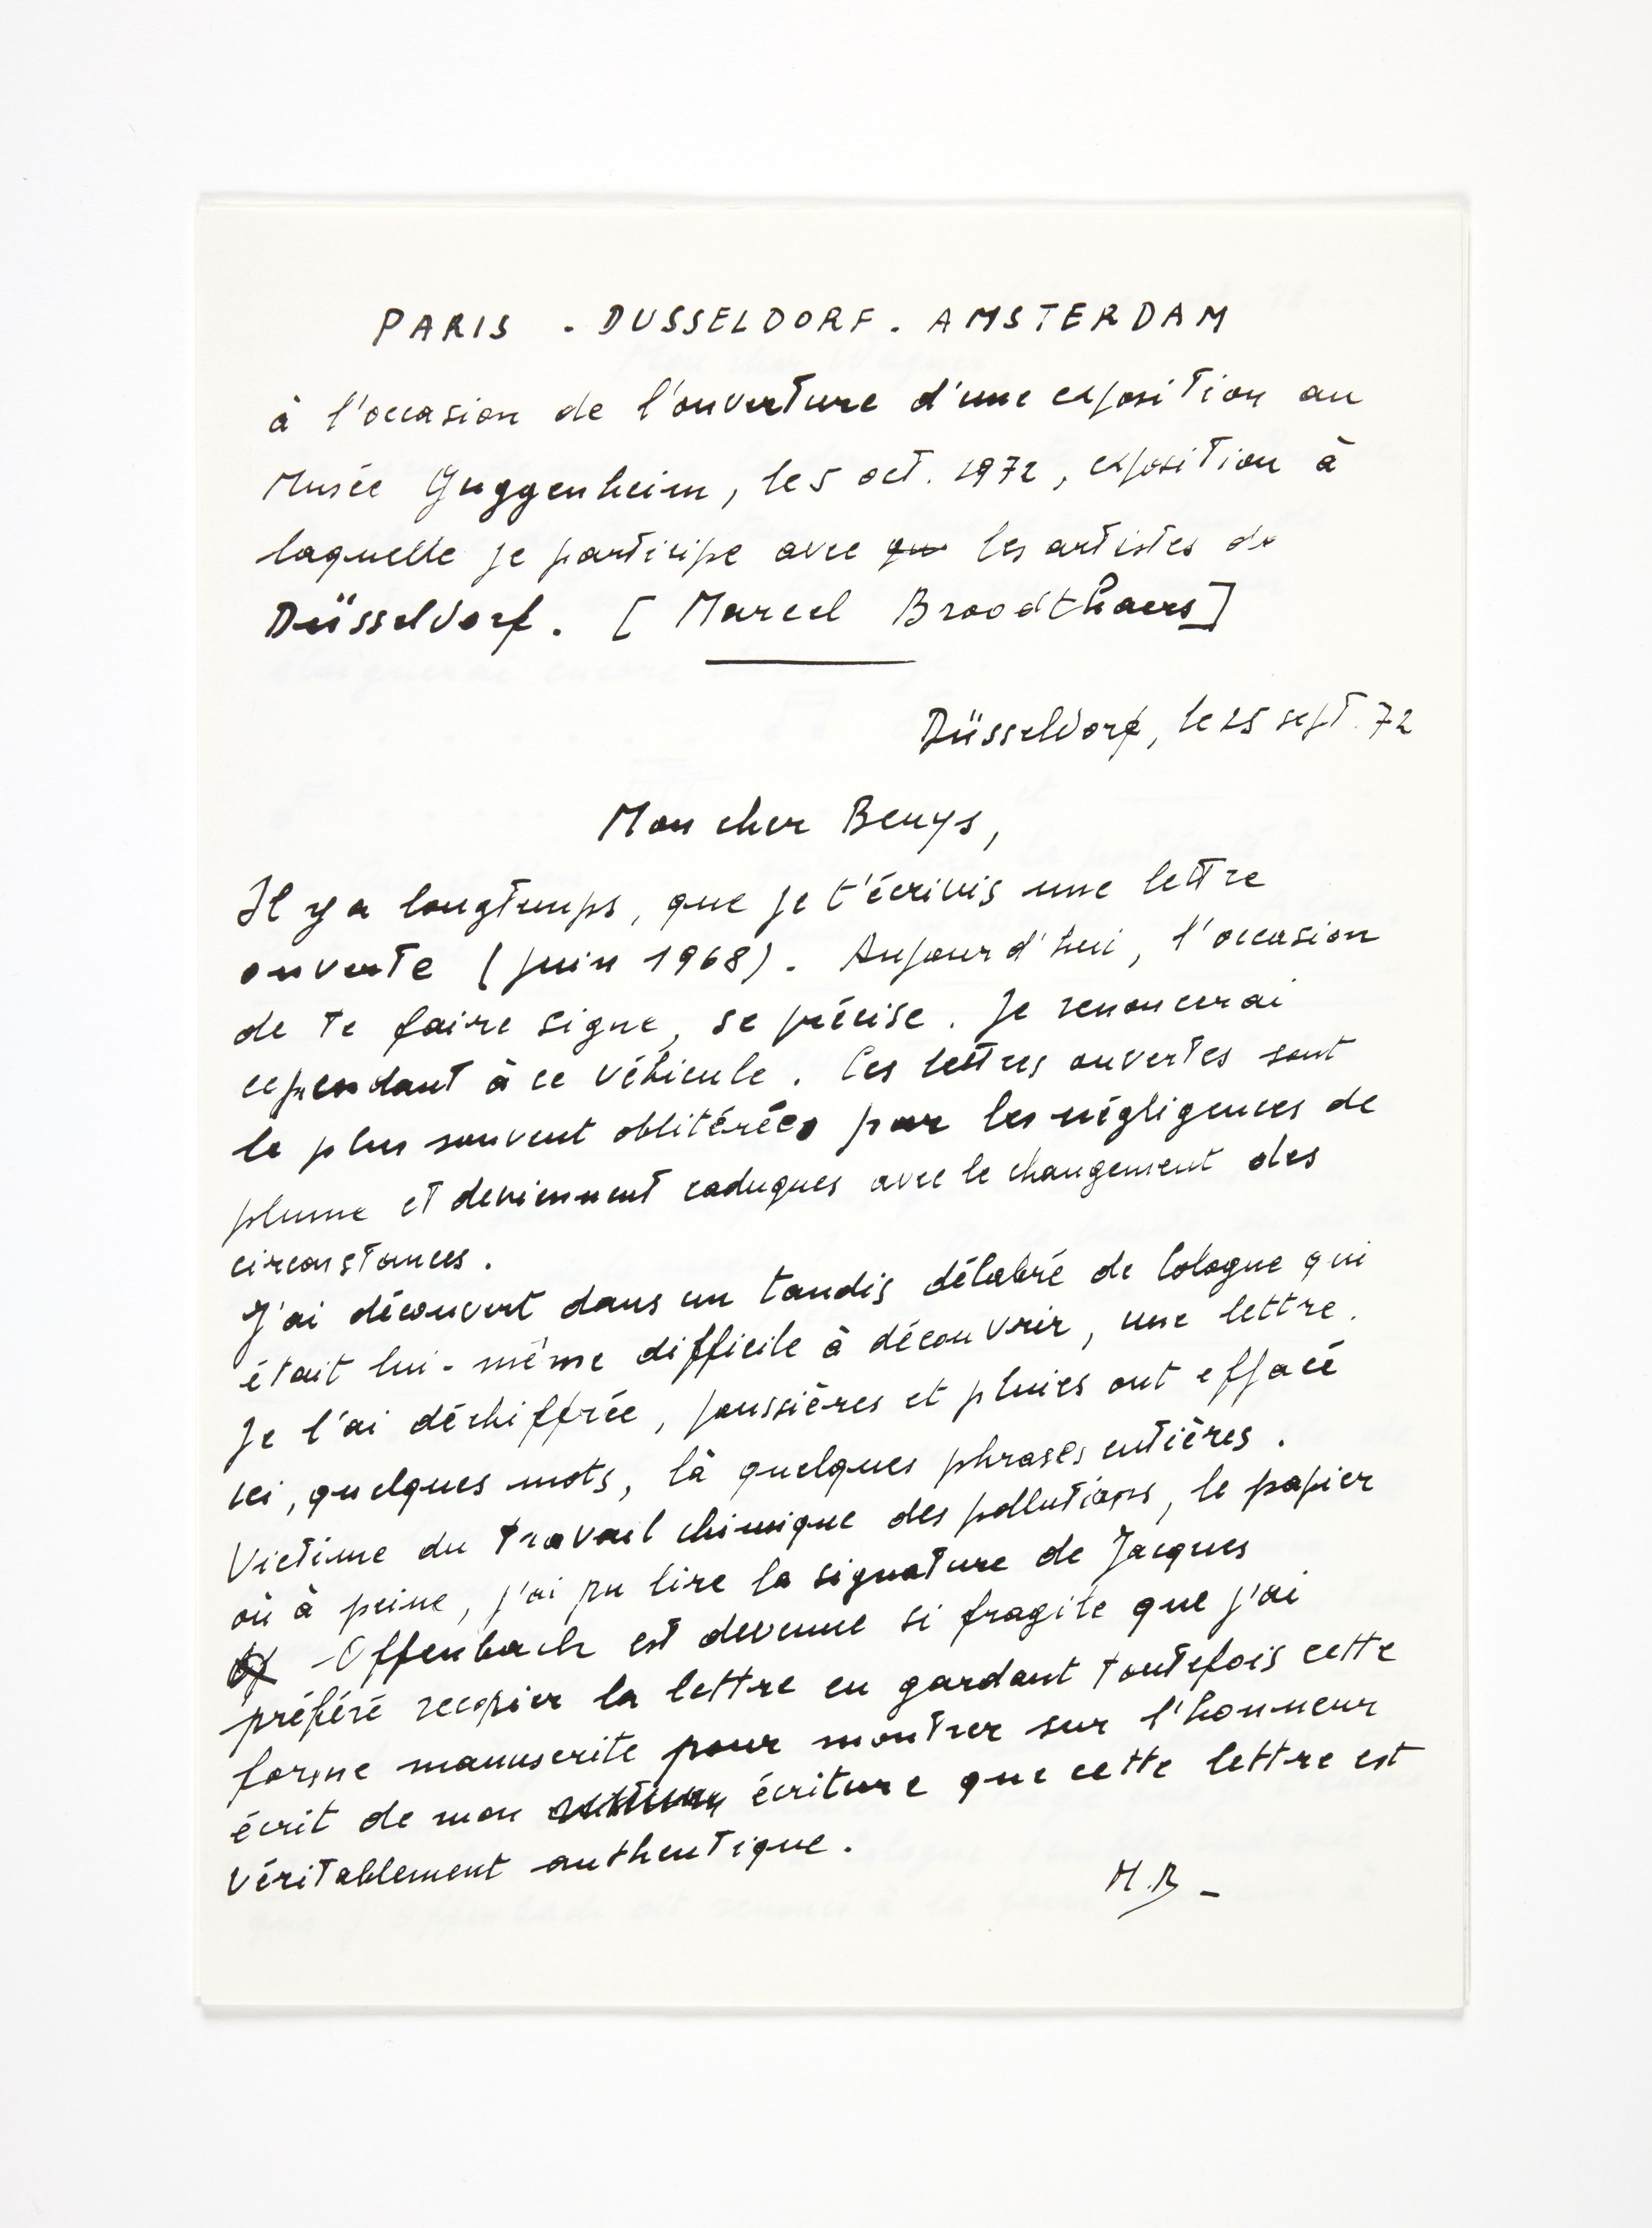 PARIS . DUSSELDORF. AMSTERDAM
à l'occasion de l'ouverture d'une exposition au
Musée Guggenheim, le 5 oct. 1972, exposition à
laquelle je participe avec qu les artistes de
Düsseldorf. [Marcel Broodthaers]
Düsseldorf, le 25 sept. 72
Mon cher Beuys,
Il y a longtemps, que je t'écrivis une lettre
ouverte (juin 1968). Aujourd'hui, l'occasion
de te faire signe, se précise. Je renoncerai
cependant à ce véhicule. Ces lettres ouvertes sont
le plus souvent oblitérées par les négligences de
plume et deviennent caduques avec le changement des
circonstances.
J'ai découvert dans un taudis délabré de Cologne qui
était lui-même difficile à découvrir, une lettre.
Je l'ai déchiffrée, poussières et pluies ont effacé
ici, quelques mots, là quelques phrases entières.
Victime du travail chimique des pollutions, le papier
où à peine, j'ai pu lire la signature de Jacques
Of -Offenbach est devenue si fragile que j'ai
préféré recopier la lettre en gardant toutefois cette
forme manuscrite pour montrer sur l'honneur
écrit de mon écriture que cette lettre est
véritablement authentique.
M.B -